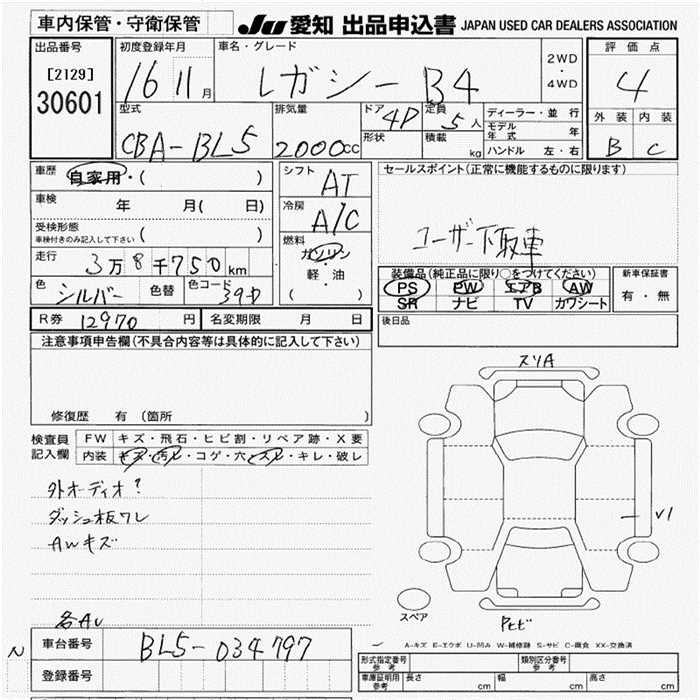 車内保管・守衛保管
JU 愛知 出品申込書 JAPAN USED CAR DEALERS ASSOCIATION
出品番号
[2129]
30601
初度登録年月
16 11月
車名・グレード
レガシー B4
2WD
・
4WD
評価点
4
外装 内装
B C
型式
CBA-BL5
排気量
2000cc
ドア 4D
形状
定員 5人
積載 kg
ディーラー・並行
モデル年式 年
ハンドル 左・右
車歴 自家用・( )
車検 年 月( 日)
受検形態
車検付きのみ記入して下さい ( )
走行 3万8千750km
色 シルバー 色替 色コード 39D
シフト AT
冷房 A/C
燃料
ガソリン
・
軽・油
( )
セールスポイント(正常に機能するものに限ります)
ユーザー下取車
装備品(純正品に限り○をつけてください)
PS PW エアB AW
SR ナビ TV カワシート
新車保証書
有・無
後日品
R券 12970円 名変期限 月 日
注意事項申告欄(不具合内容等は具体的に記入して下さい)
修復歴 有(箇所 )
検査員記入欄
FW キズ・飛石・ヒビ割・リペア跡・X要
内装 キズ・汚レ・コゲ・穴・スレ・キレ・破レ
外オーディオ?
ダッシュ板ワレ
AWキズ
各AU
スリA
V1
スペア
Pヒビ
N
車台番号 BL5-034797
登録番号
A-キズ E-エクボ U-凹み W-補修跡 S-サビ C-腐食 XX-交換済
形式指定番号 参考
類別区分番号 参考
車庫証明用 参考 長さ cm 幅 cm 高さ cm